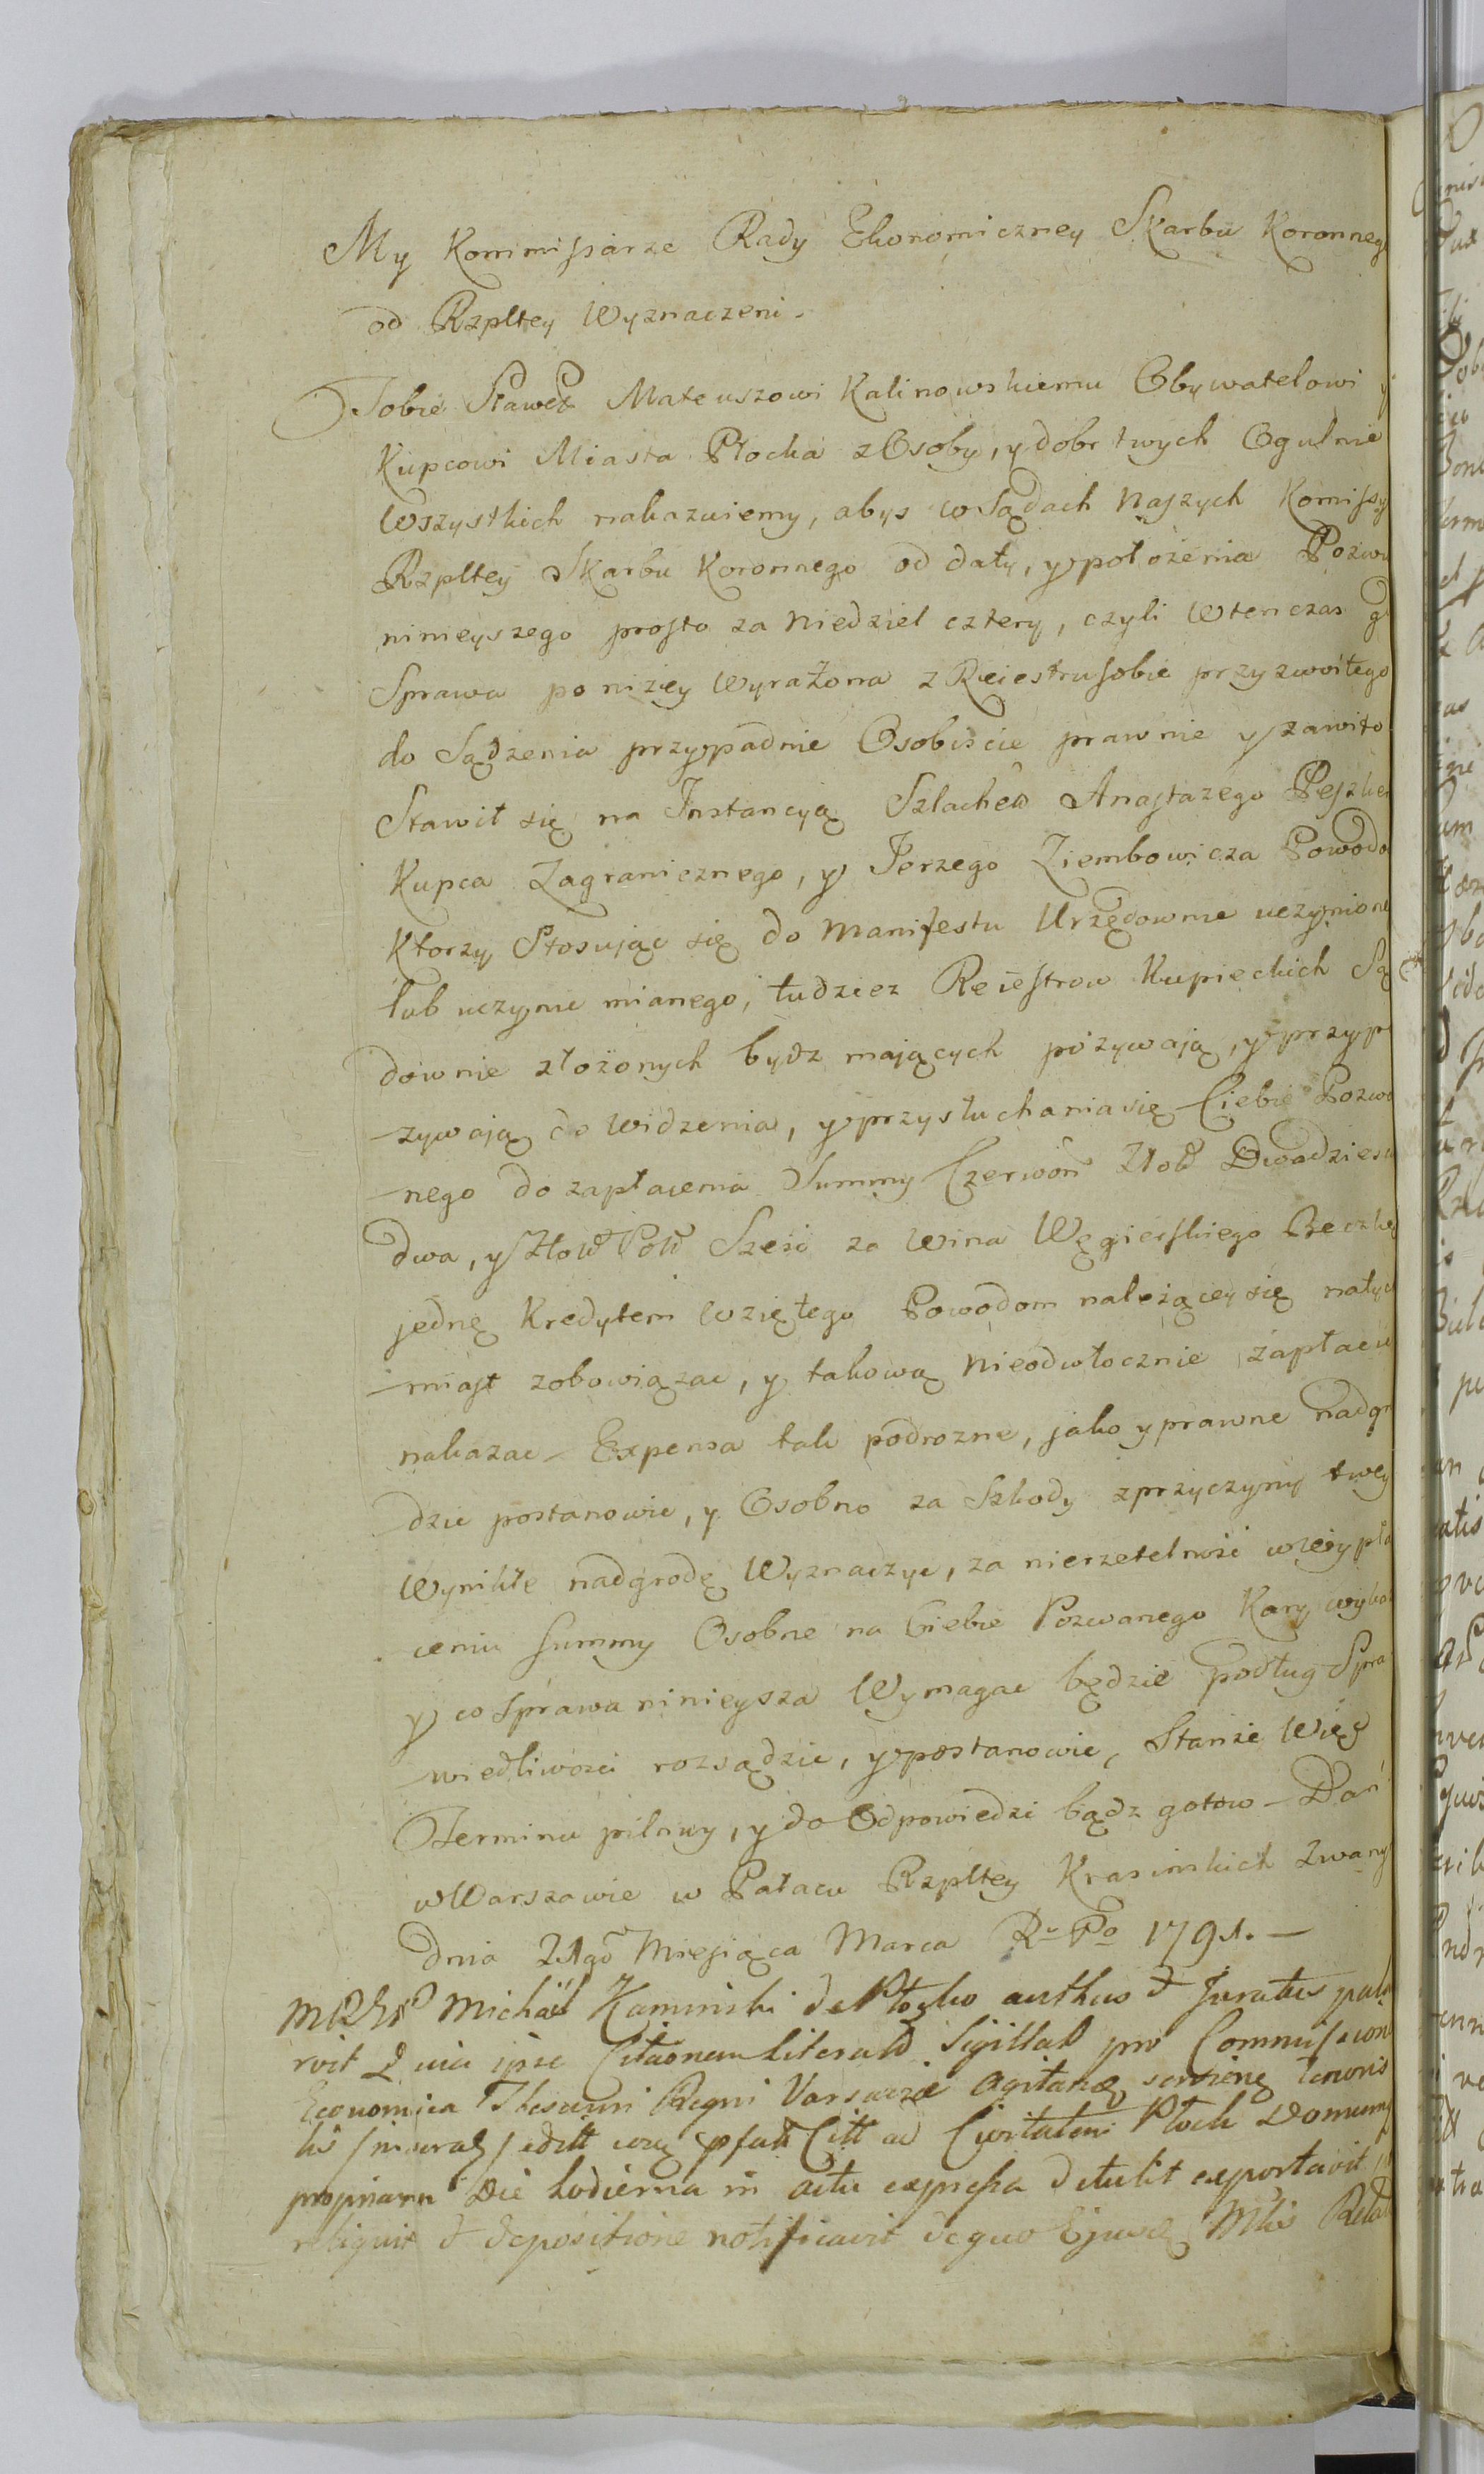 My Kommissarze Rady Ekonomiczney Skarbu Koronneg
od Rzpltey Wyznaczeni.
Tobie Sławet Mateuszowi Kalinowskiemu Obywatelowi y
Kupcowi Miasta Płocka z Osoby, y dobr twych Ogulnie
Wszystkich nakazuiemy, abys w Sądach Naszych Komissyi
Rzpltey Skarbu Koronnego od daty, y położenia Pozwu
ninieyszego prosto za Niedziel cztery, czyli Wtenczas g
Sprawa poniżey Wyrażona z Reiestru sobie przyzwoitego
do Sądzenia przypadnie Osobiscie prawnie y zawito
Stawił się na Instancyą Szlachet Anastazego
Kupca Zagranicznego, y Jerzego Ziembowicza Powodo
Ktorzy Stosując się do Manifestu Urzędownie uczynione
lub uczynic mianego, tudziez Reiestrow Kupieckich Są
downie złożonych bydz mających pozywają, y przyp
zywają do Widzenia, y przysłuchania się Ciebie Pozwa
nego do zapłacenia Summy Czerwon Złot Dwadziescia
dwa, y Złot Pol Szesc za Wina Węgierskiego Beczkę
jednę Kredytem Wziętego Powodom należącey się natych
miast zobowiązac, y takową Nieodwłocznie zapłacic
nakazac – Expensa tak podrozne, jako y prawne nadgr
dzic postanowic, y Osobno za Szkody z przyczyny twey
Wynikłe nadgrodę Wyznaczyc, za nierzetelność w
ceniu Summy Osobne na Ciebie Pozwanego Kary
y co Sprawa ninieysza Wymagac będzie podług Spra
wiedliwosci rozsądzic, y postanowic, Stanże Więc
Terminu pilnuy, y do Odpowiedzi bądz gotow – Dan
w Warszawie w Pałacu Rzpltey Krasinskich Zwany
dnia 21go Miesiąca Marca Ru Po 1791. –
Michael Kaminski de Płocko juratus
rvit Quia ipse Literal Sigillat pro Commission
Economica Thesauri Regni Varsaviæ
Civitatem Płock Domum
propriam Die hodierna in actu expressa detulit exportavit
reliquit & depositione notificavit de quo Ejusd